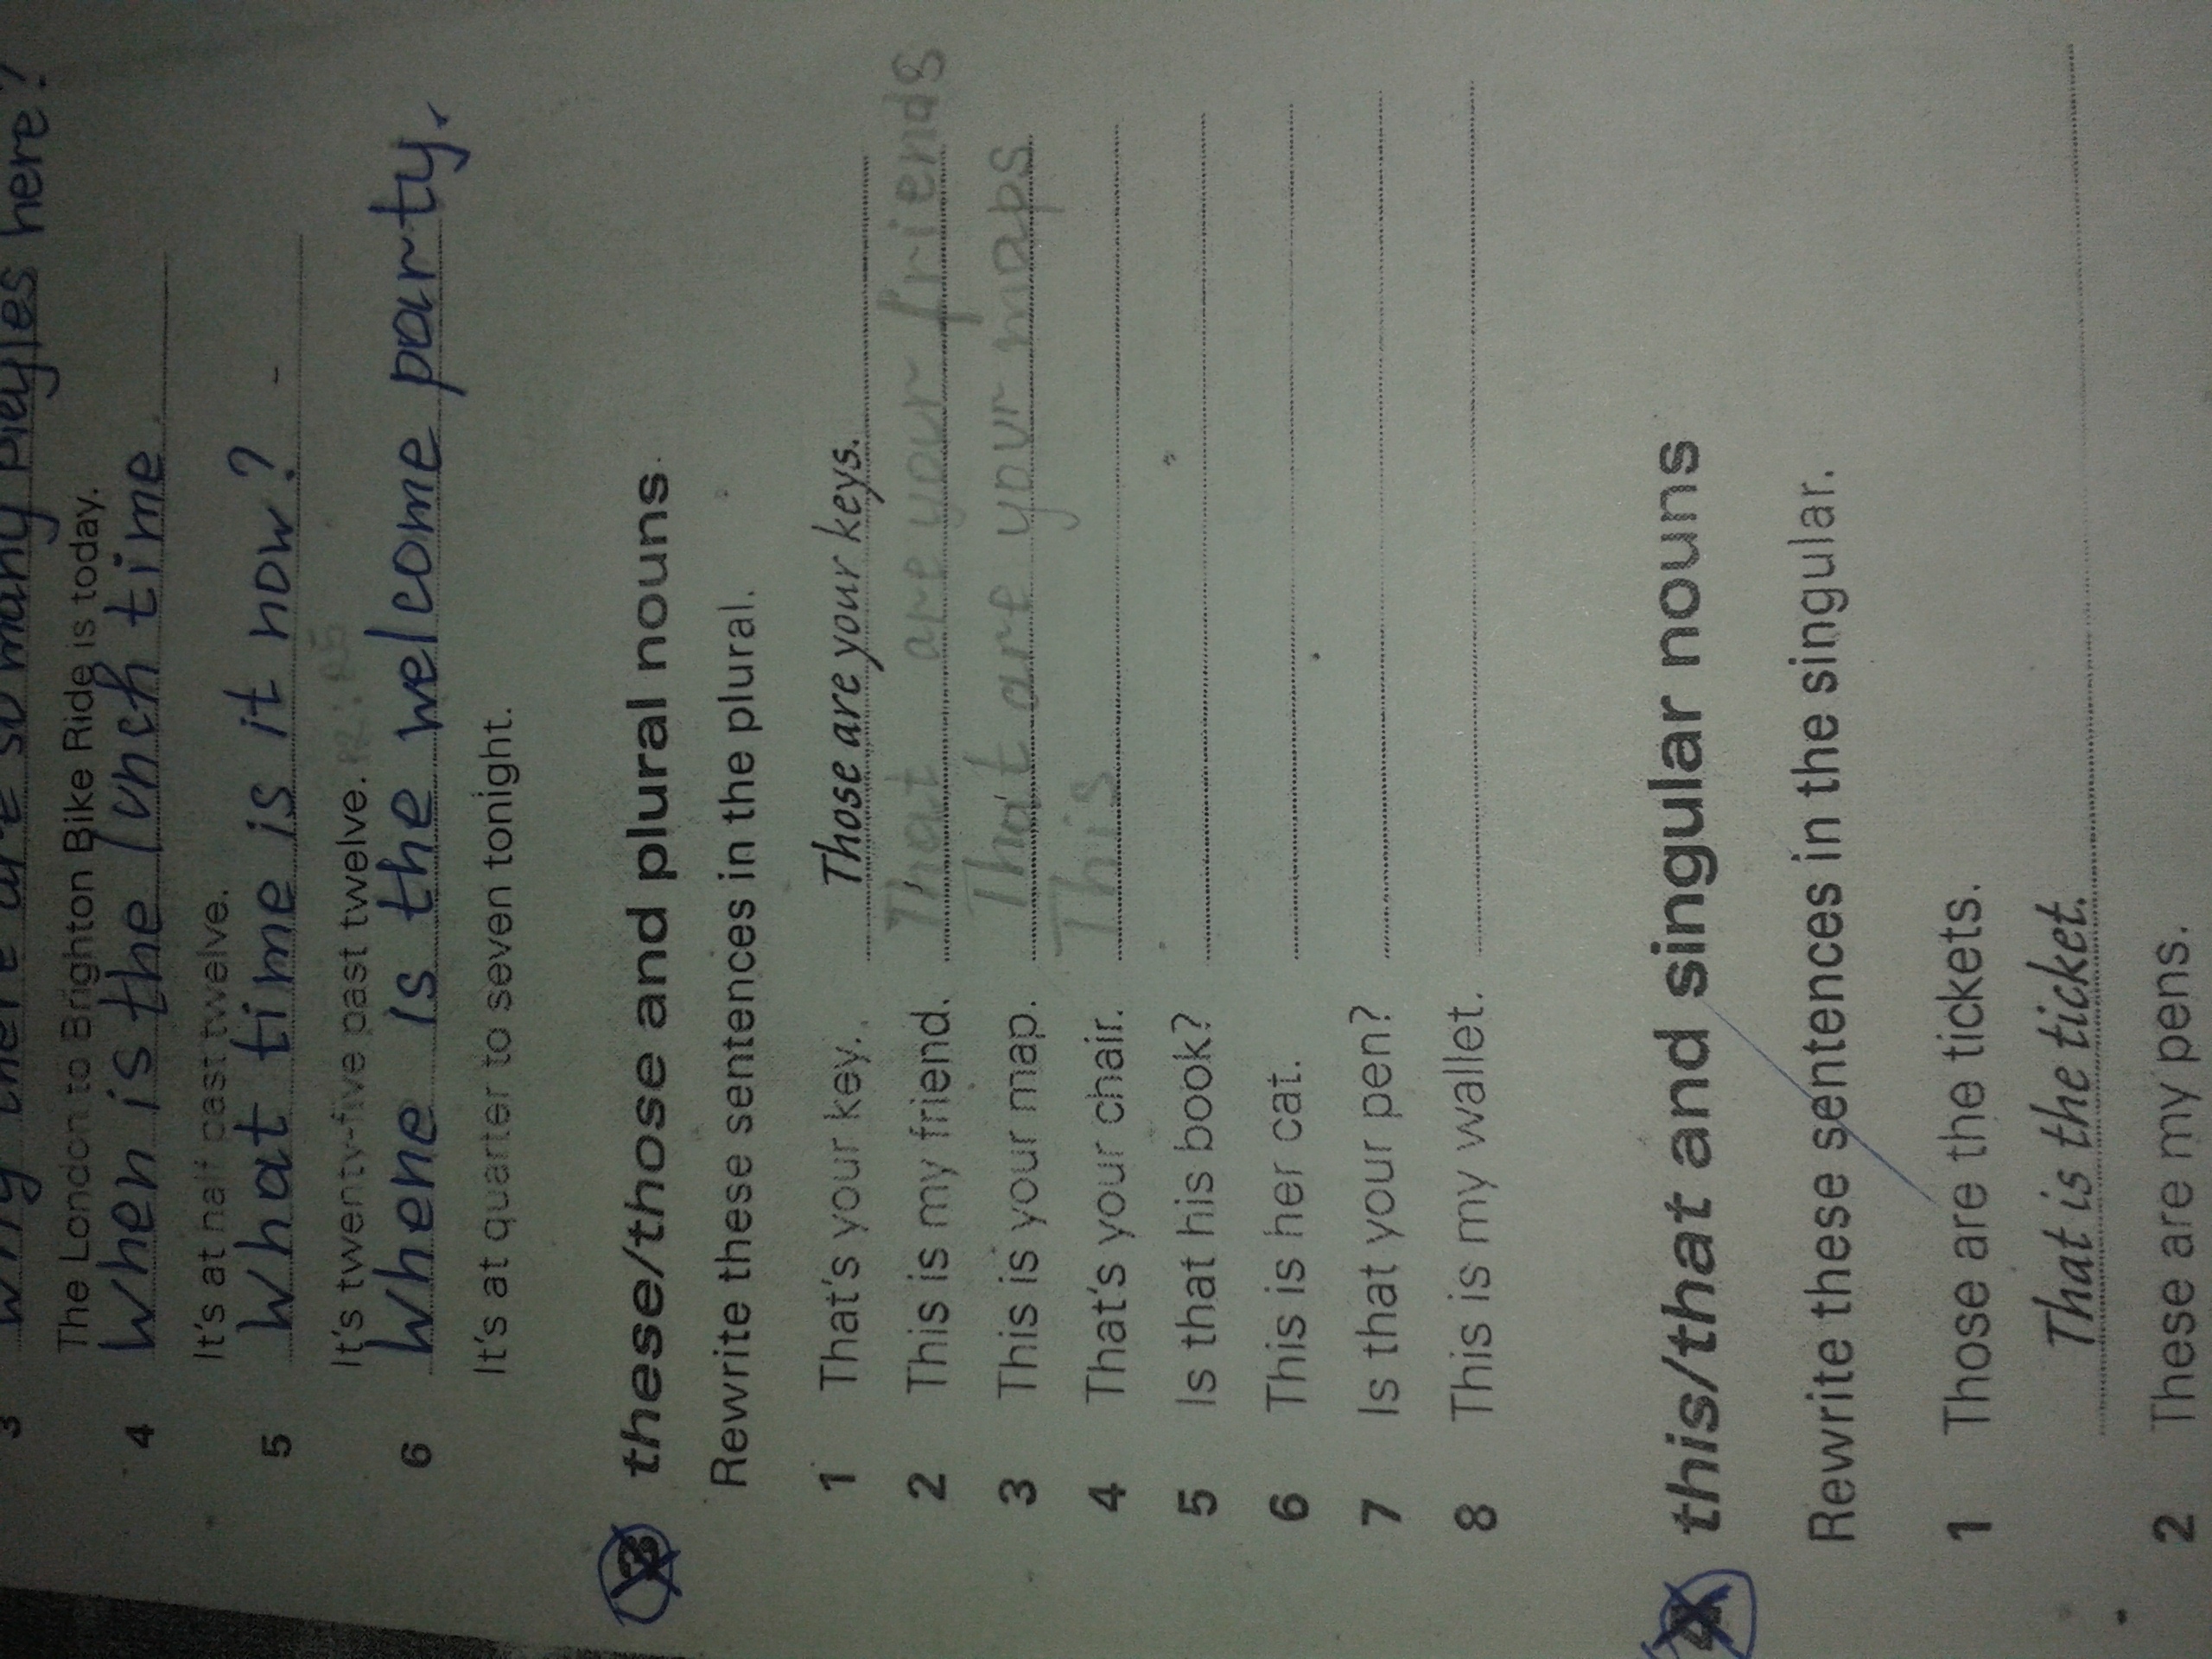 3 why there are so many here?
The London to Brighton Bike Ride is today.
4 When is the lunch time
It's at half past twelve.
5 What time is it now? -
It's twenty-five past twelve.
6 Whene is the welcome party.
It's at quarter to seven tonight.
3 these/those and plural nouns
Rewrite these sentences in the plural.
1 That's your key. Those are your keys.
2 This is my friend. That are your friends
3 This is your map. That are your maps
4 That's your chair. This
5 Is that his book?
6 This is her cat.
7 Is that your pen?
8 This is my wallet.
4 this/that and singular nouns
Rewrite these sentences in the singular.
1 Those are the tickets.
That is the ticket.
2 These are my pens.